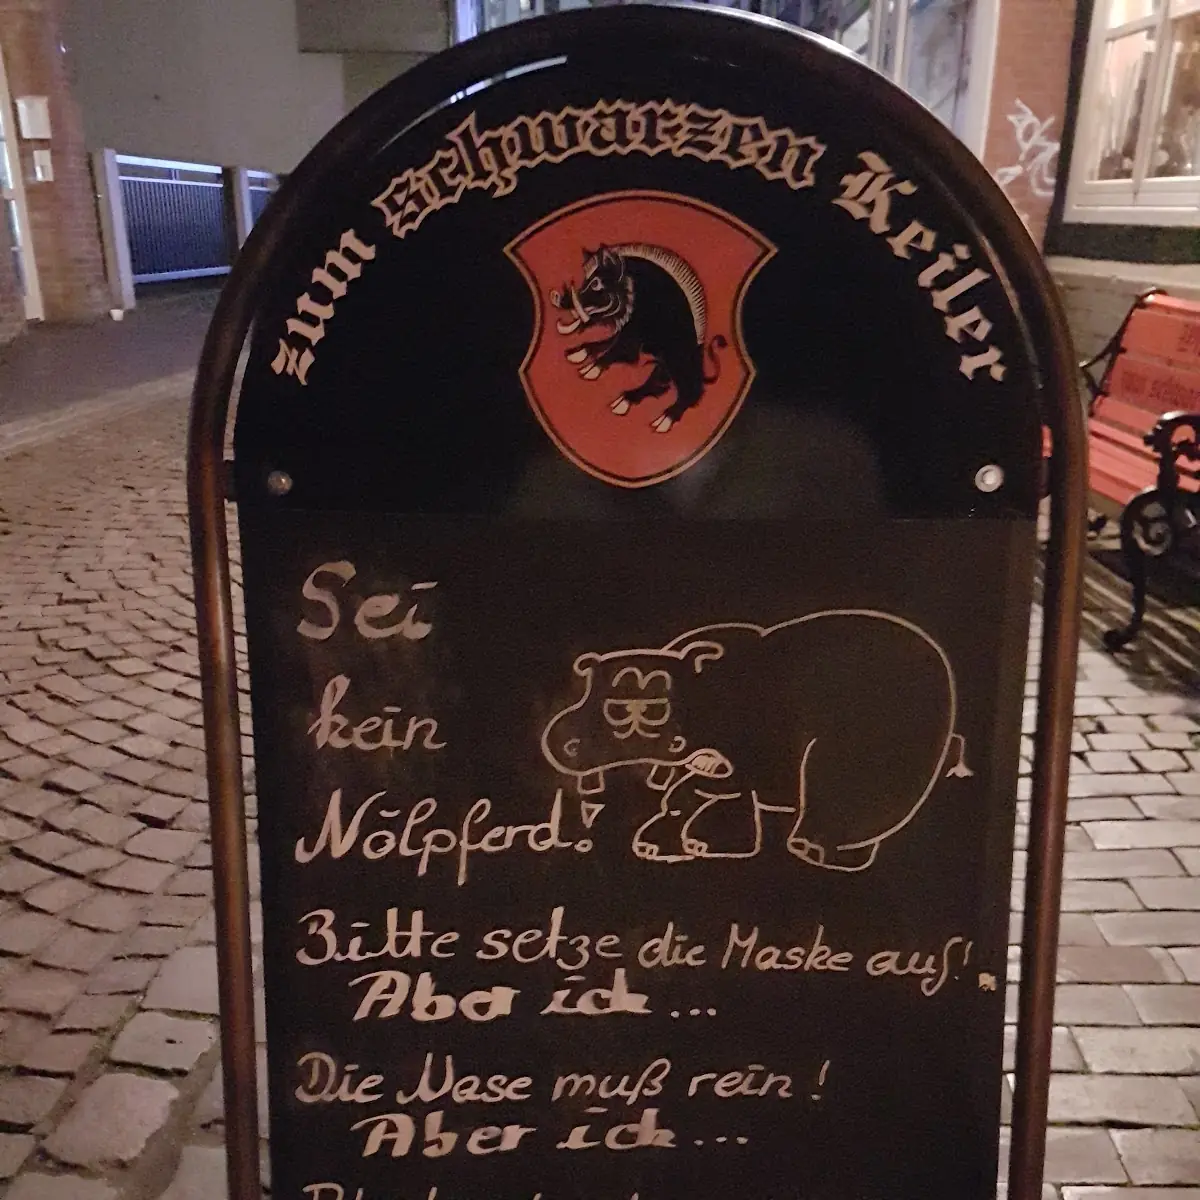 zum schwarzen Keiler
Sei
kein
Nölpferd!
Bitte setze die Maske auf!
Aber ich...
Die Nase muß rein!
Aber ich...